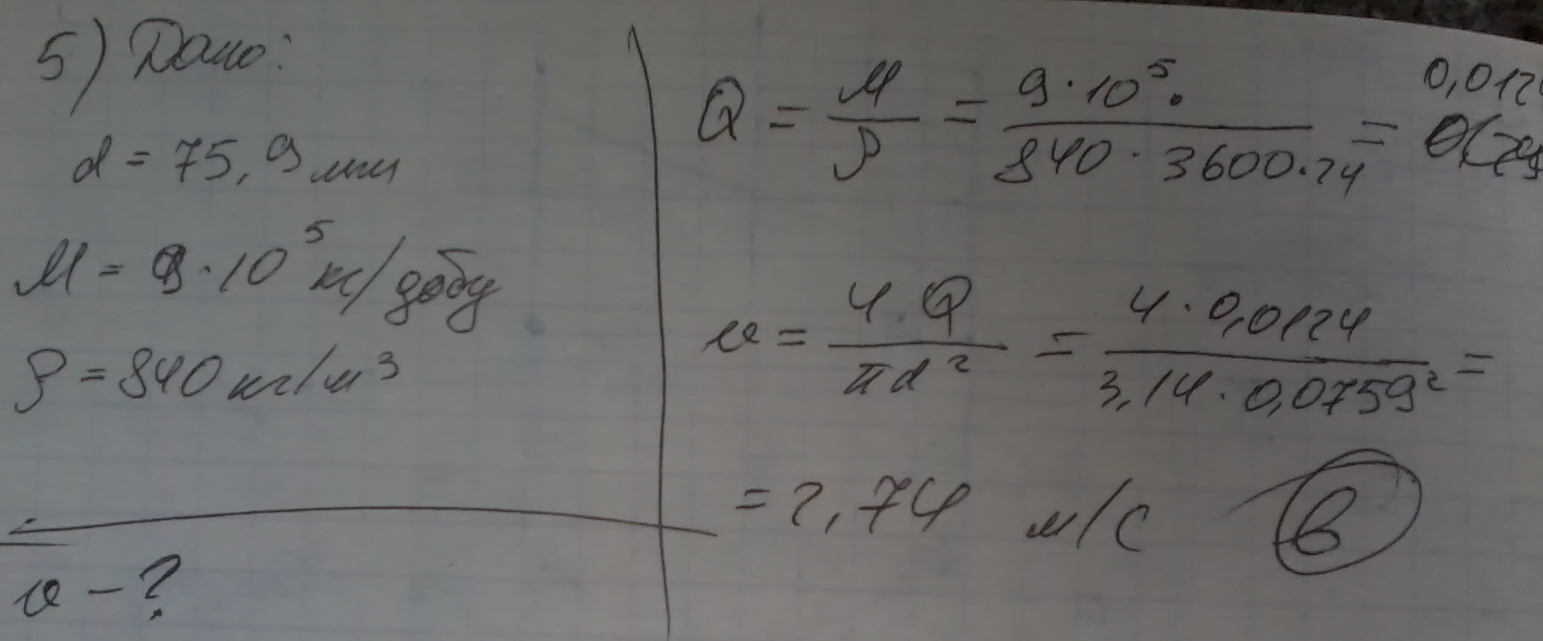 5) Дано:
d = 75,9 мм
M = 9·10⁵ кг/добу
ρ = 840 кг/м³
v – ?
Q = M/ρ = 9·10⁵·/840·3600·24 = 0,0124
v = 4Q/πd² = 4·0,0124/3,14·0,0759² =
= 2,74 м/с В